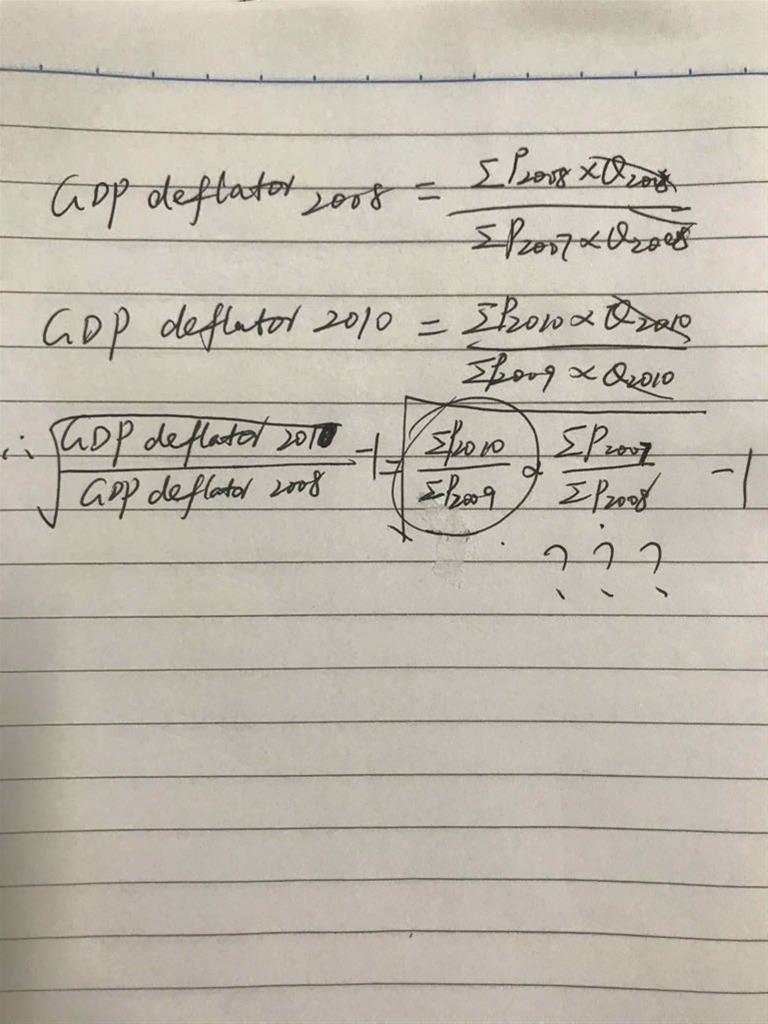 GDP deflator 2008 = ΣP2008 × Q2008 / ΣP2007 × Q2008
GDP deflator 2010 = ΣP2010 × Q2010 / ΣP2009 × Q2010
∴ √(GDP deflator 2010 / GDP deflator 2008) -1 = √(ΣP2010 / ΣP2009 × ΣP2007 / ΣP2008) -1
? ? ?